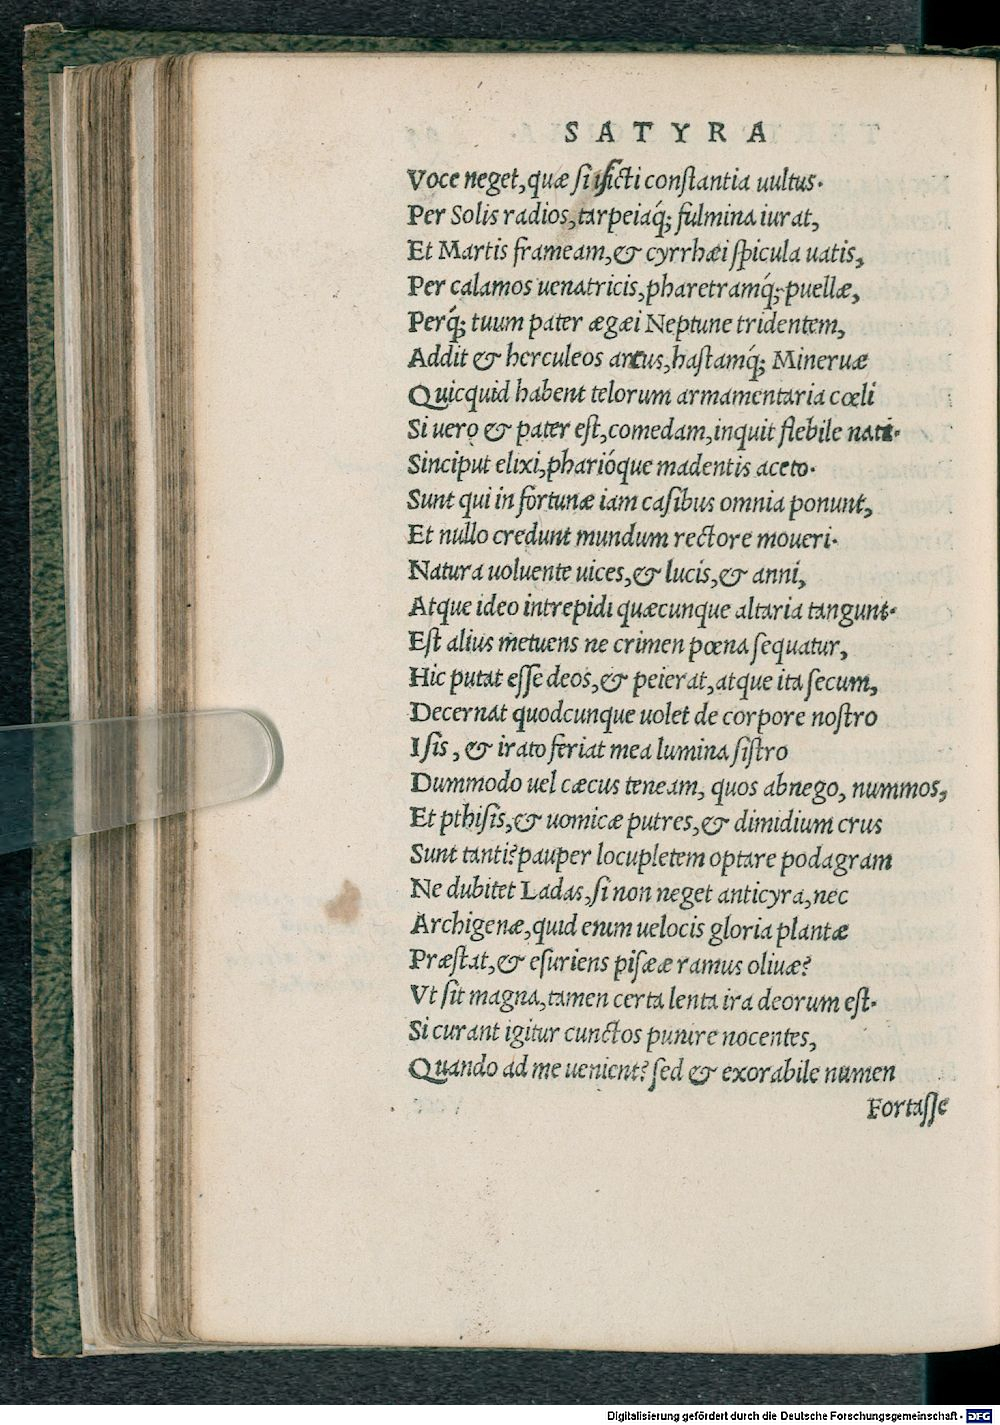 SATYRA
Voce neget, quæ sit ficti constantia uultus.
Per Solis radios, tarpeiaq́; fulmina iurat,
Et Martis frameam, & cyrrhæi spicula uatis,
Per calamos uenatricis, pharetramq́; puellæ,
Perq́; tuum pater ægæi Neptune tridentem,
Addit & herculeos arcus, hastamq́; Mineruæ
Quicquid habent telorum armamentaria cœli
Si uero & pater est, comedam, inquit flebile nati.
Sinciput elixi, pharióque madentis aceto.
Sunt qui in fortunæ iam casibus omnia ponunt,
Et nullo credunt mundum rectore moueri.
Natura uoluente uices, & lucis, & anni,
Atque ideo intrepidi quæcunque altaria tangunt.
Est alius metuens ne crimen pœna sequatur,
Hic putat esse deos, & peierat, atque ita secum,
Decernat quodcunque uolet de corpore nostro
Isis, & irato feriat mea lumina sistro
Dummodo uel cæcus teneam, quos abnego, nummos,
Et pthisis, & uomicæ putres, & dimidium crus
Sunt tanti? pauper locupletem optare podagram
Ne dubitet Ladas, si non neget anticyra, nec
Archigenæ, quid enim uelocis gloria plantæ
Præstat, & esuriens pisææ ramus oliuæ?
Vt sit magna, tamen certa lenta ira deorum est.
Si curant igitur cunctos punire nocentes,
Quando ad me uenient? sed & exorabile numen
Fortasse
Digitalisierung gefördert durch die Deutsche Forschungsgemeinschaft - DFG